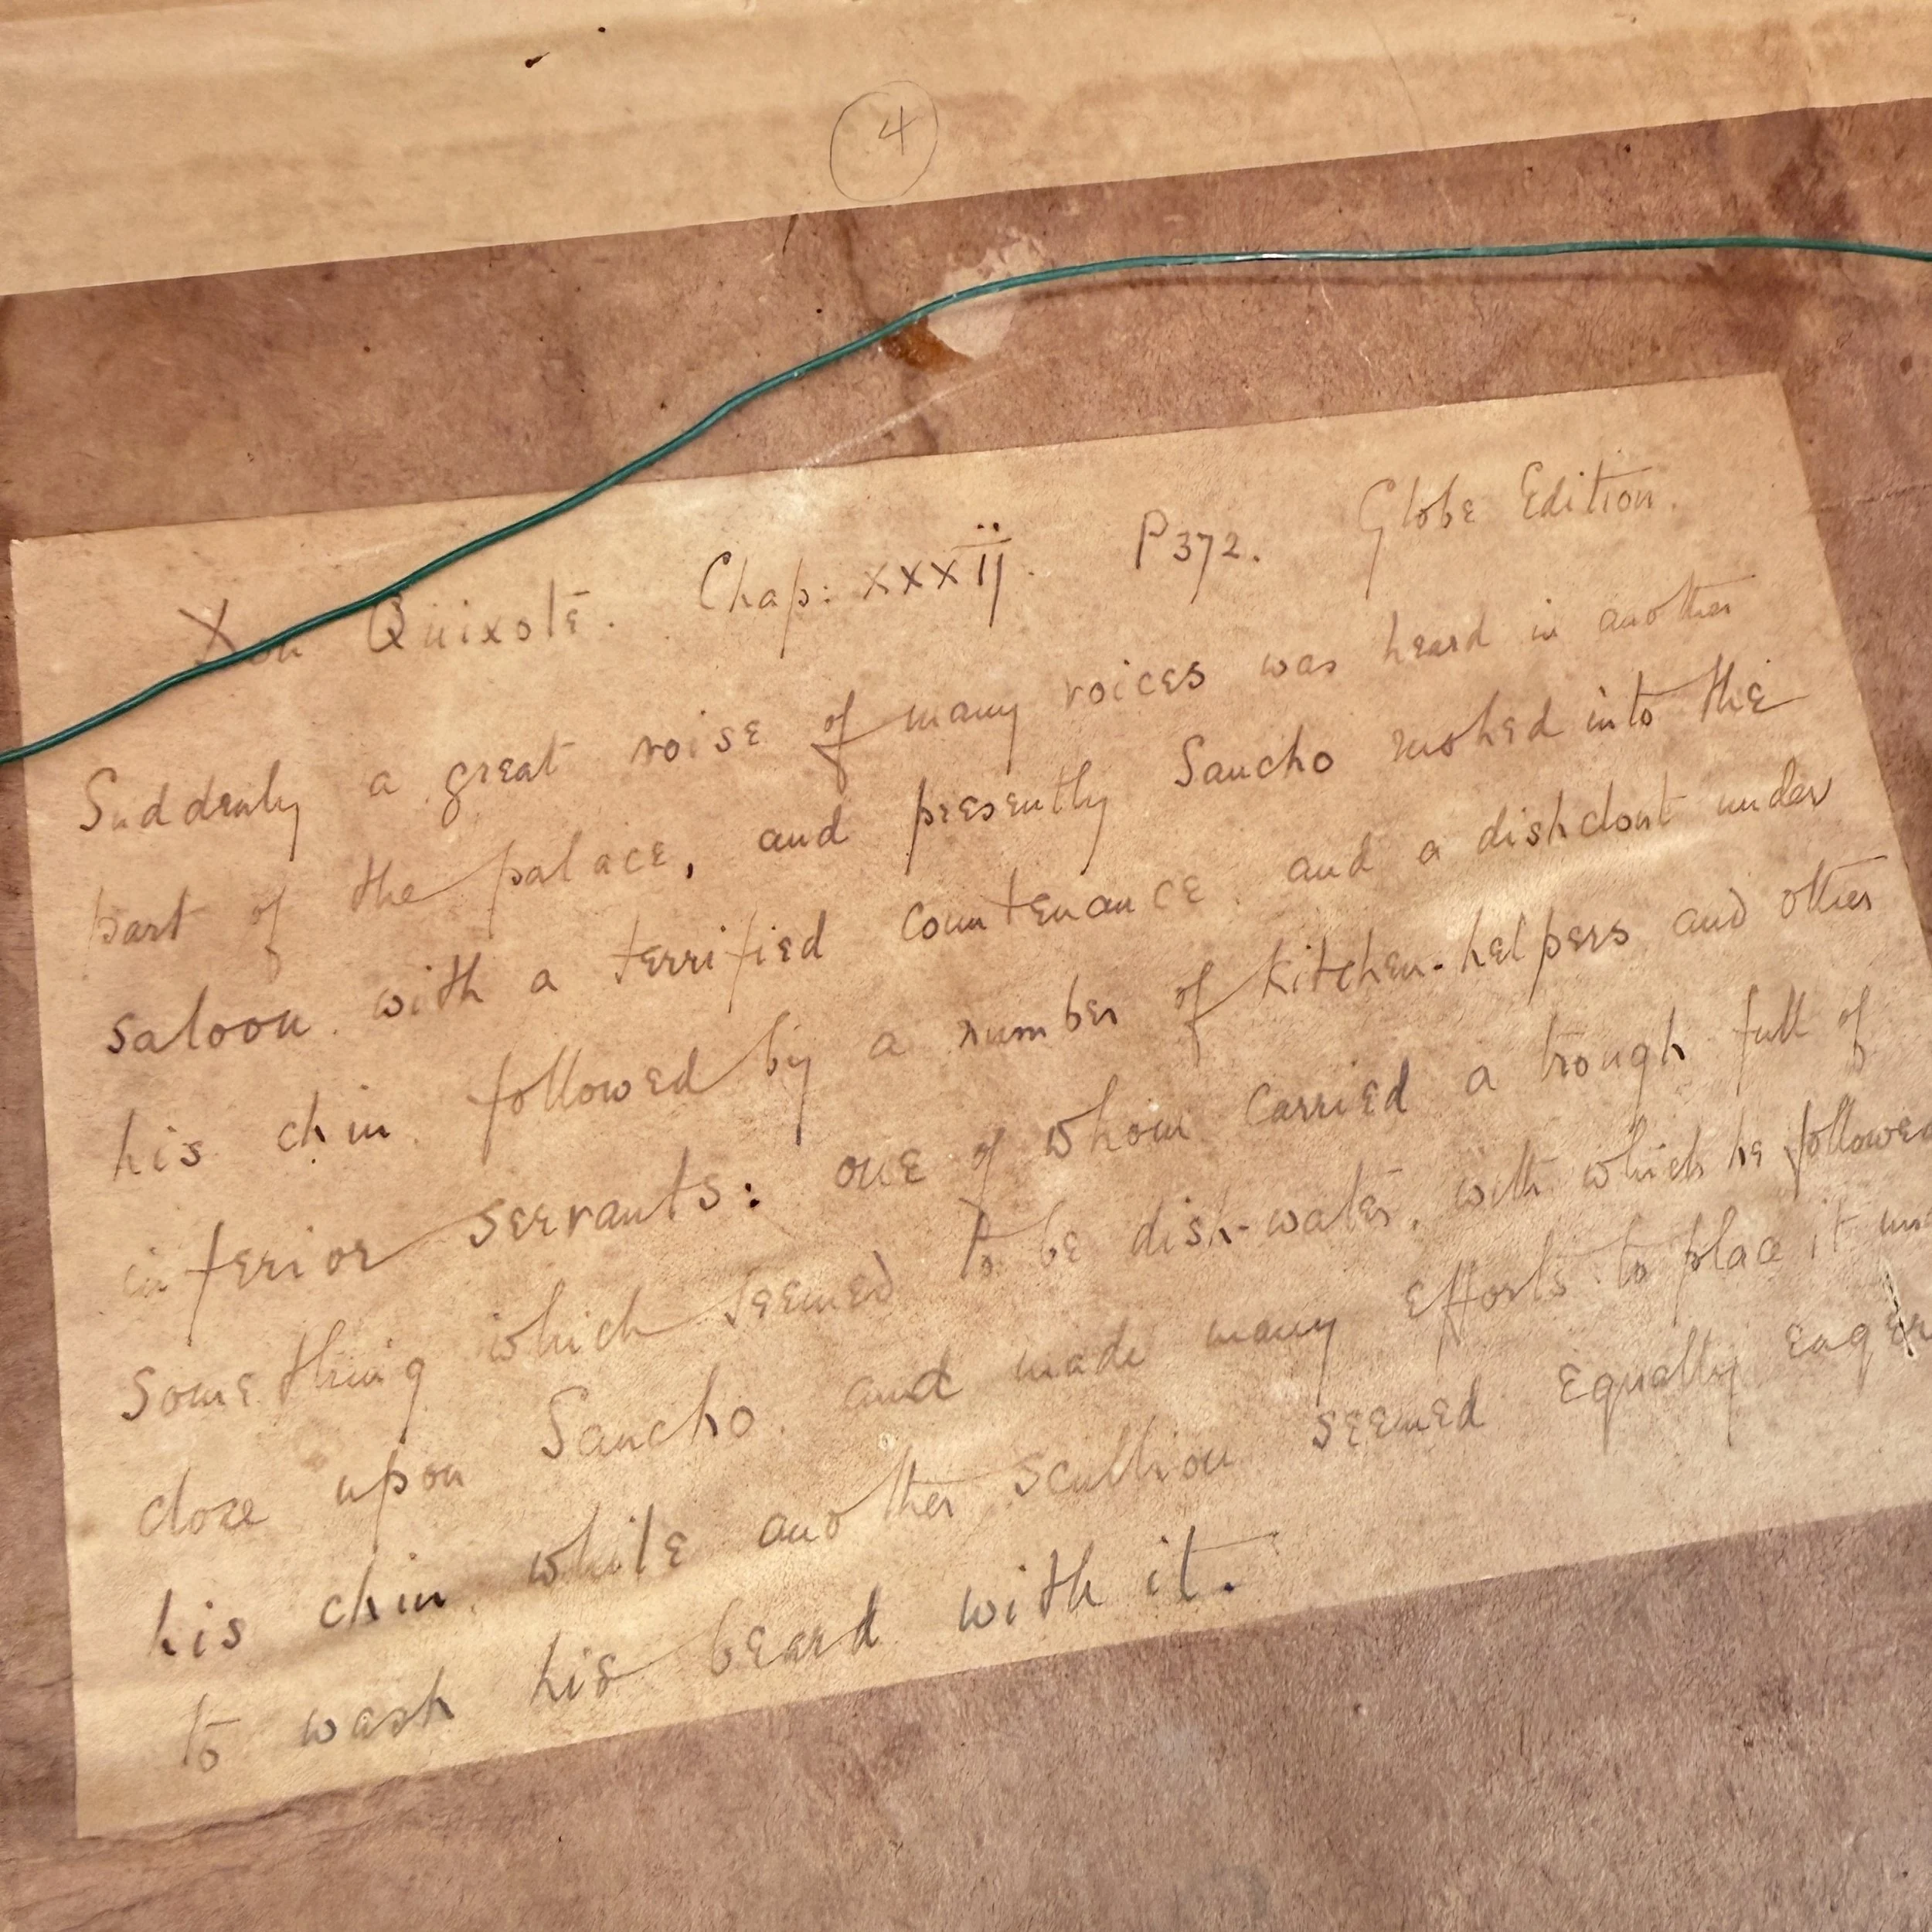 4
Don Quixote. Chap: XXXII. P372. Globe Edition.
Suddenly a great noise of many voices was heard in another
part of the palace, and presently Sancho rushed into the
saloon. with a terrified countenance. and a dishclout under
his chin. followed by a number of kitchen-helpers and other
inferior servants: one of whom carried a trough full of
something which seemed to be dish-water, with which he followed
close upon Sancho. and made many efforts to place it
his chin. while another scullion seemed equally eager
to wash his beard with it.